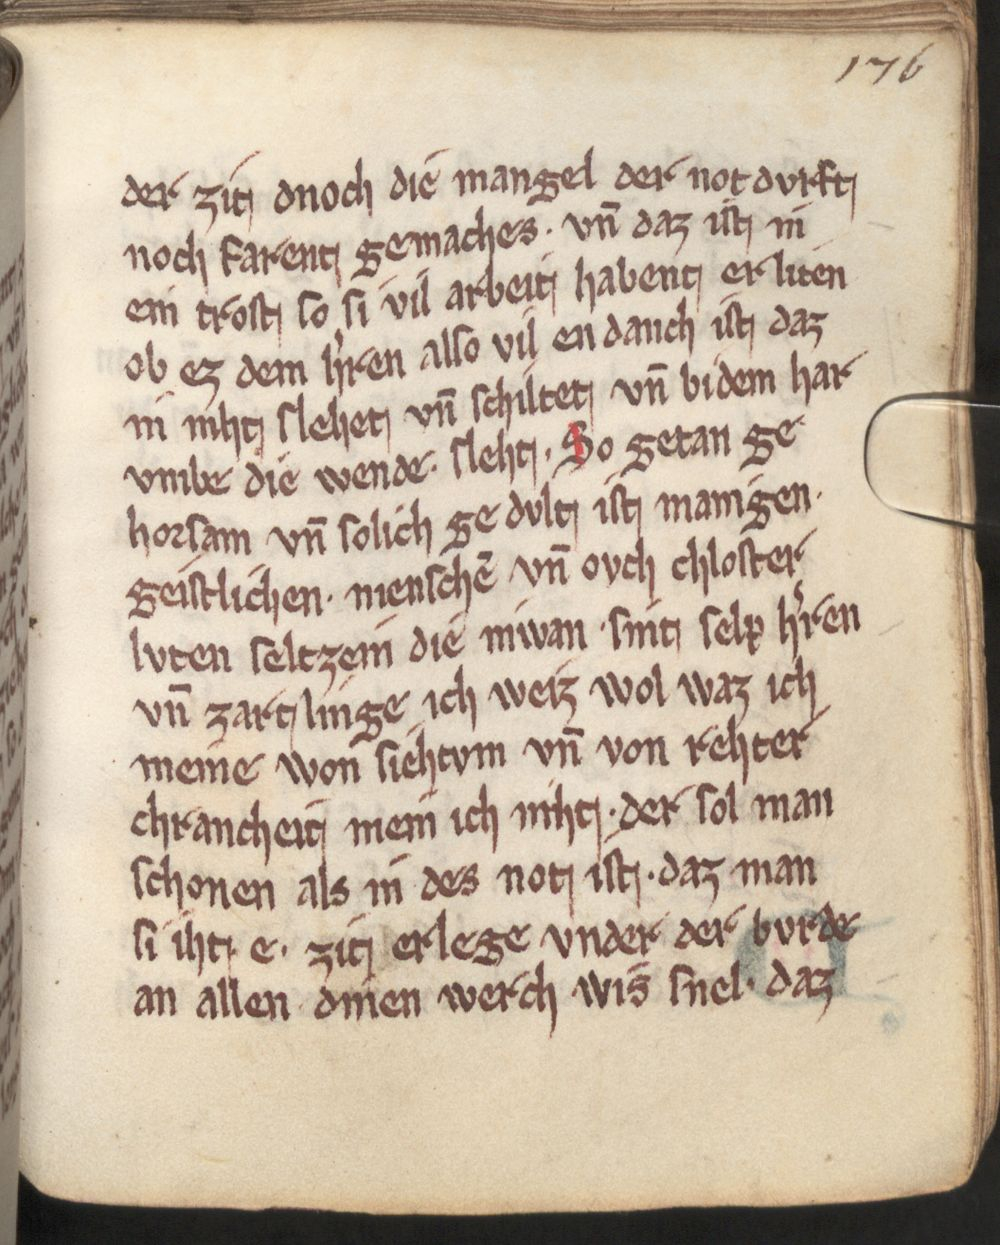 176
der zit dnoch die mangel der notdvrft
noch farent gemaches. vn̄ daz ist in
ein trost so si vil arbeit habent erliten
ob ez dem h'ren also vil endanch ist daz
in niht slehet vn̄ schiltet vn̄ bidem har
vmbe die wende. sleht. So getan ge
horsam vn̄ solich gedvlt ist manigen.
geistlichen. menschē vn̄ ovch chloster
lvten seltzein die niwan sint selp h'ren
vn̄ zartlinge ich weiz wol waz ich
meine won siehtvm vn̄ von rehter
chrancheit mein ich niht. der sol man
schonen als in des not ist. daz man
si iht e. zit erlege vnder der bvrde
an allen dinen werch wis snel. daz